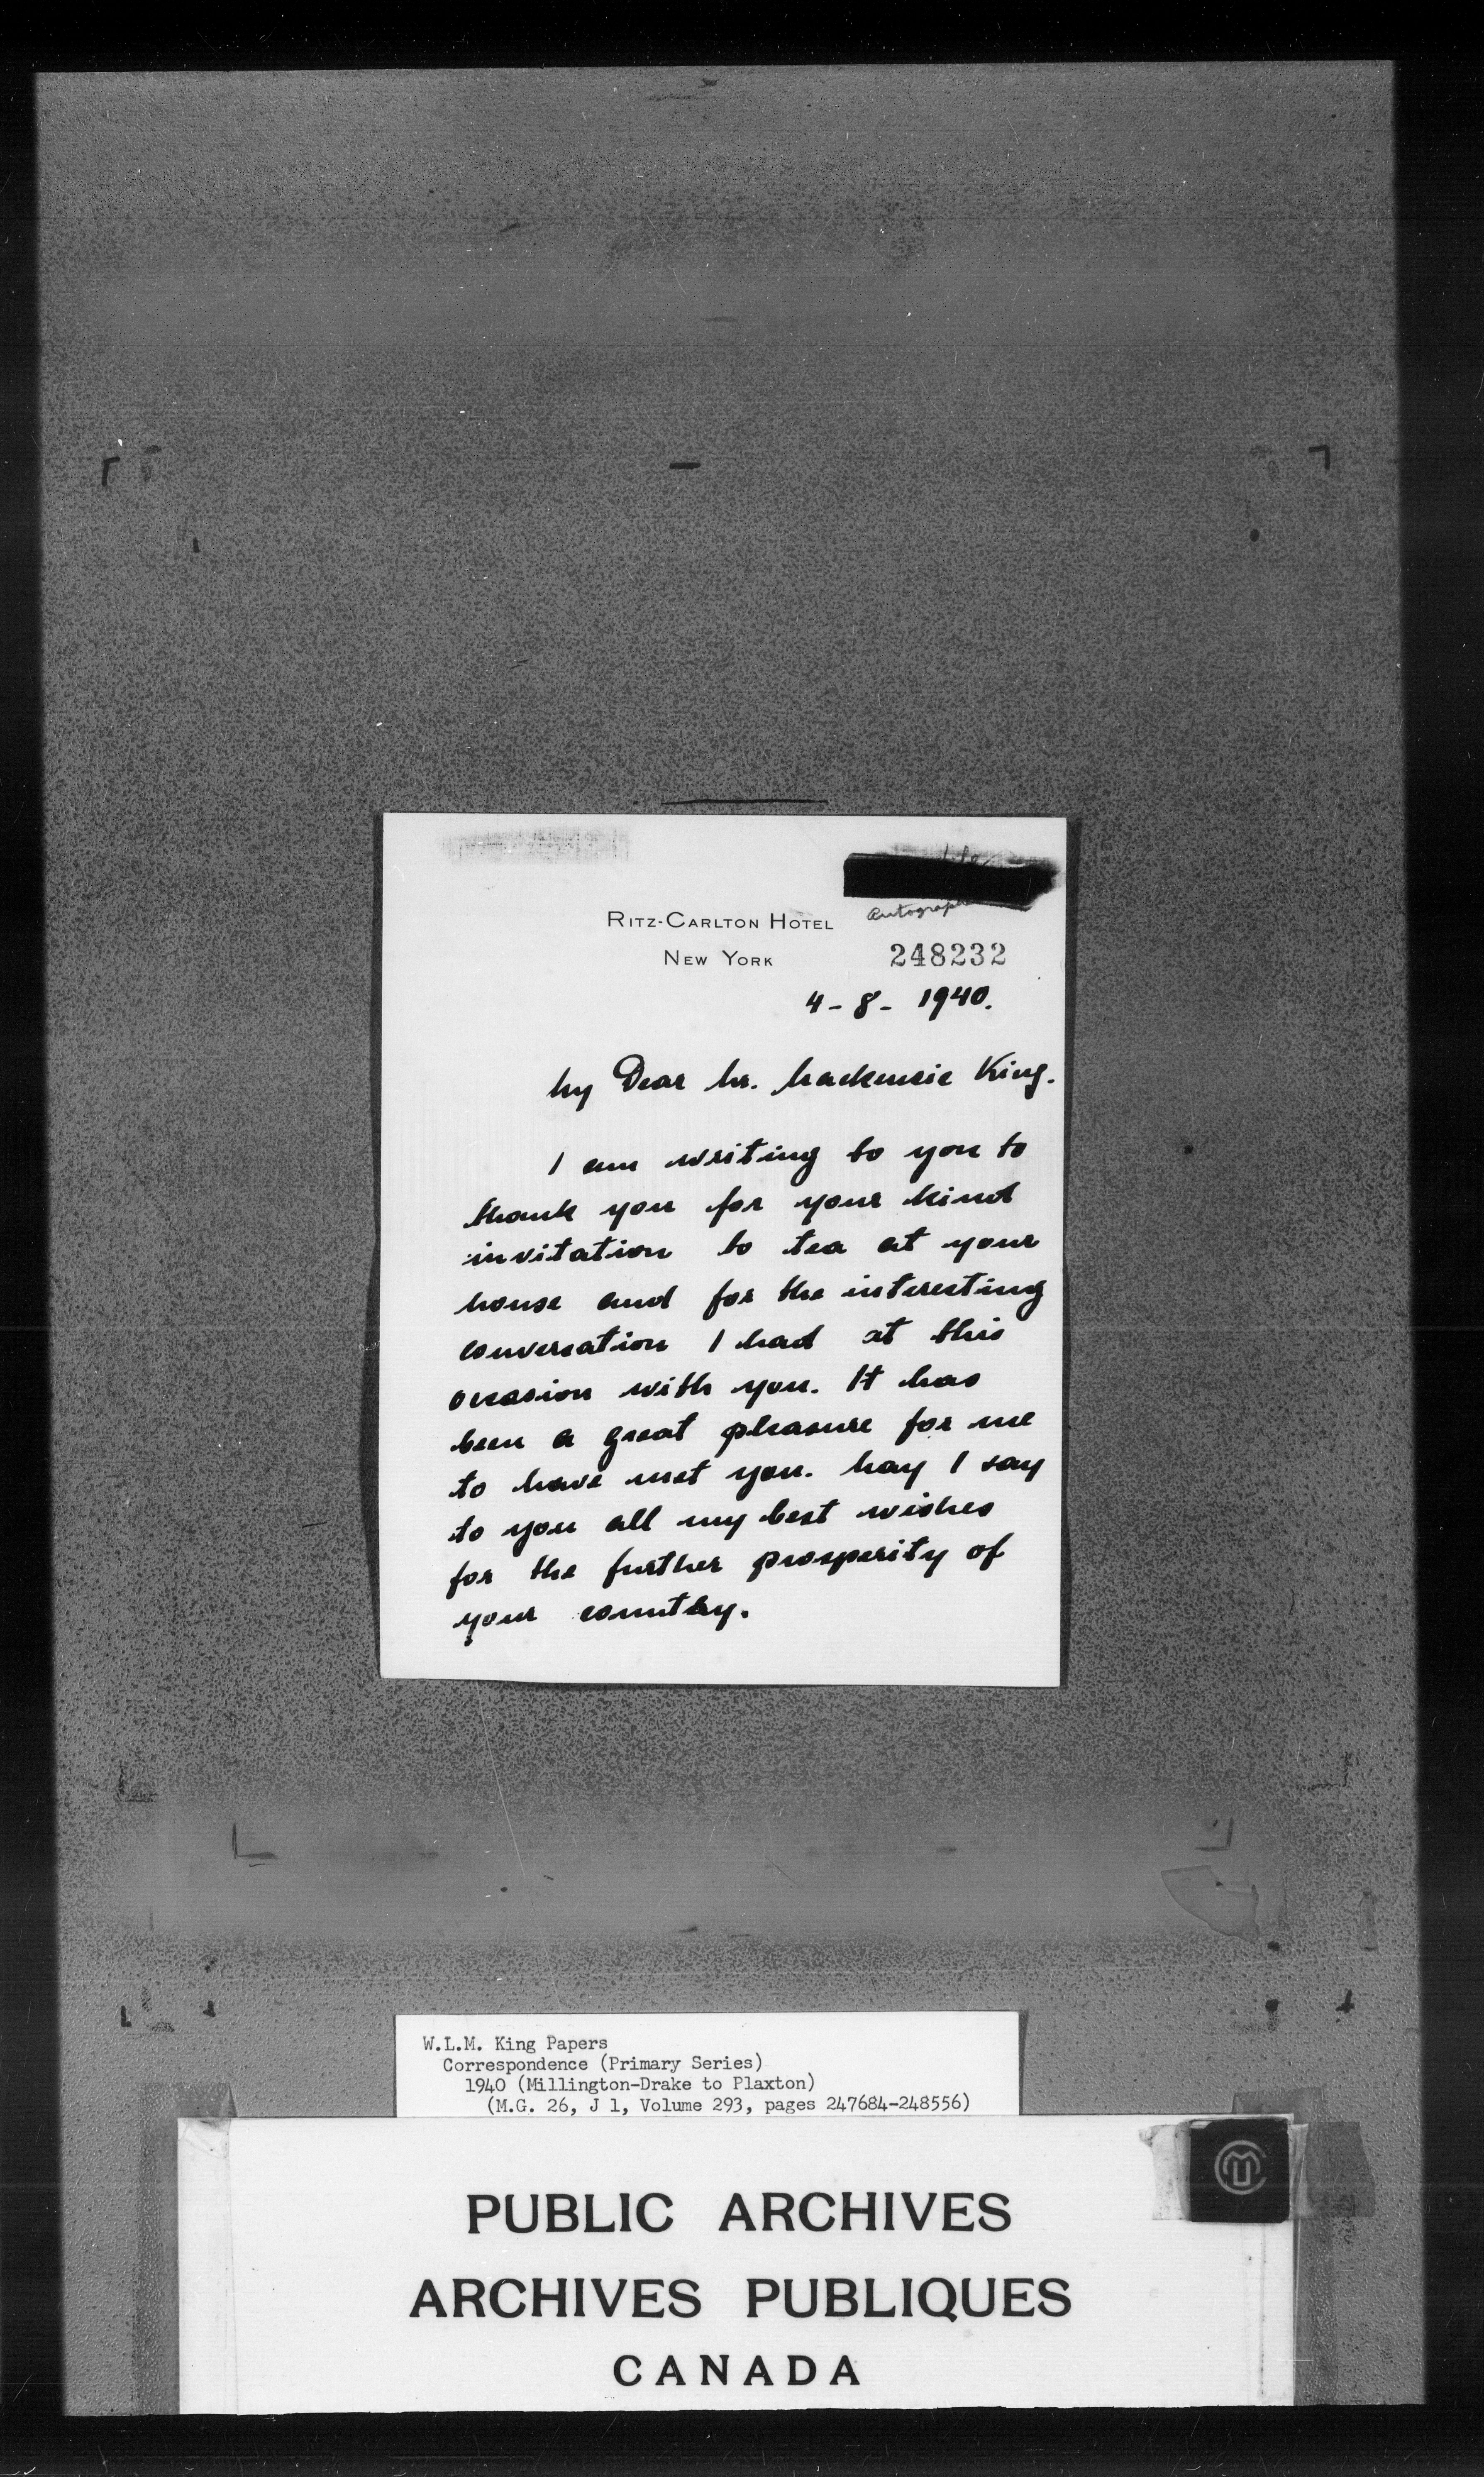 Autograph
RITZ-CARLTON HOTEL
NEW YORK
248232
4-8-1940.
My Dear Mr. Mackenzie King.
I am writing to you to
thank you for your kind
invitation to tea at your
house and for the interesting
conversation I had at this
occasion with you. It has
been a great pleasure for me
to have met you. May I say
to you all my best wishes
for the further prosperity of
your country.
W.L.M. King Papers
Correspondence (Primary Series)
1940 (Millington-Drake to Plaxton)
(M.G. 26, J 1, Volume 293, pages 247684-248556)
PUBLIC ARCHIVES
ARCHIVES PUBLIQUES
CANADA